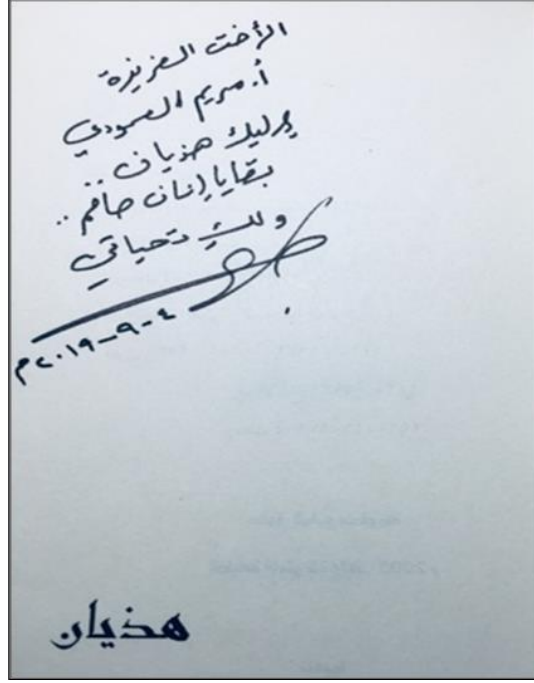 الأخت العزيزة
أ. مريم العمودي
إليك هذيان ..
بقايا إنسان صائم ..
ولكِ تحياتي
٤-٩-٢٠١٩م
هذيان